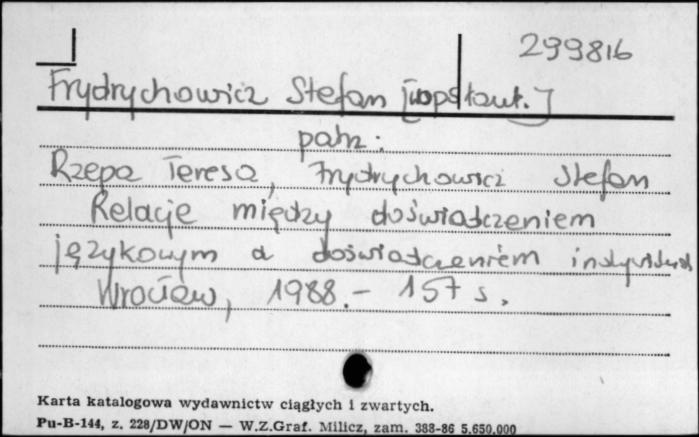 299816
Frydrychowicz Stefan [współaut.]
patrz:
Rzepa Teresa, Frydrychowicz Stefan
Relacje między doświadczeniem
językowym a doświadczeniem
Wrocław, 1988.- 157 s.
Karta katalogowa wydawnictw ciągłych i zwartych.
Pu-B-144, z. 228/DW/ON — W.Z.Graf. Milicz, zam. 388-86 5.650.000